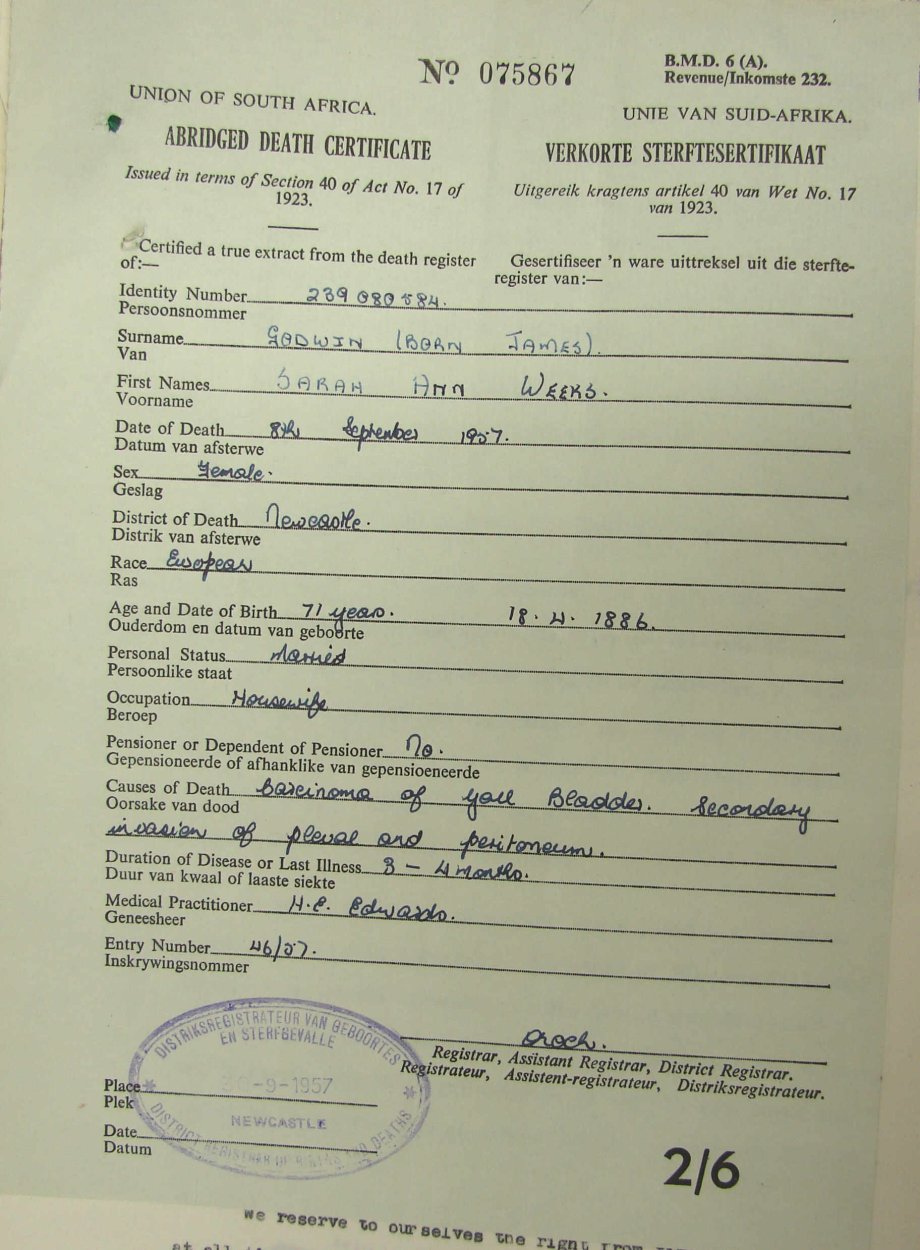 Nº 075867
B.M.D. 6 (A).
Revenue/Inkomste 232.
UNION OF SOUTH AFRICA.
ABRIDGED DEATH CERTIFICATE
Issued in terms of Section 40 of Act No. 17 of
1923.
UNIE VAN SUID-AFRIKA.
VERKORTE STERFTESERTIFIKAAT
Uitgereik kragtens artikel 40 van Wet No. 17
van 1923.
Certified a true extract from the death register
of:—
Gesertifiseer 'n ware uittreksel uit die sterfte-
register van:—
Identity Number 239 080 584.
Persoonsnommer
Surname GODWIN (BORN JAMES).
Van
First Names SARAH ANN WEEKS.
Voorname
Date of Death 8th September 1957.
Datum van afsterwe
Sex Female.
Geslag
District of Death Newcastle.
Distrik van afsterwe
Race European
Ras
Age and Date of Birth 71 years. 18.4.1886.
Ouderdom en datum van geboorte
Personal Status Married
Persoonlike staat
Occupation Housewife
Beroep
Pensioner or Dependent of Pensioner No.
Gepensioneerde of afhanklike van gepensioeneerde
Causes of Death Carcinoma of gall Bladder. Secondary
Oorsake van dood
invasion of pleval and peritoneum.
Duration of Disease or Last Illness 3 – 4 months.
Duur van kwaal of laaste siekte
Medical Practitioner H.E. Edwards.
Geneesheer
Entry Number 46/57.
Inskrywingsnommer
Registrar, Assistant Registrar, District Registrar.
Registrateur, Assistent-registrateur, Distriksregistrateur.
DISTRIKSREGISTRATEUR VAN GEBOORTES
EN STERFGEVALLE
-9-1957
NEWCASTLE
DISTRICT REGISTRAR OF BIRTHS AND DEATHS
Place
Plek
Date
Datum
2/6
We reserve to ourselves the right from
at all